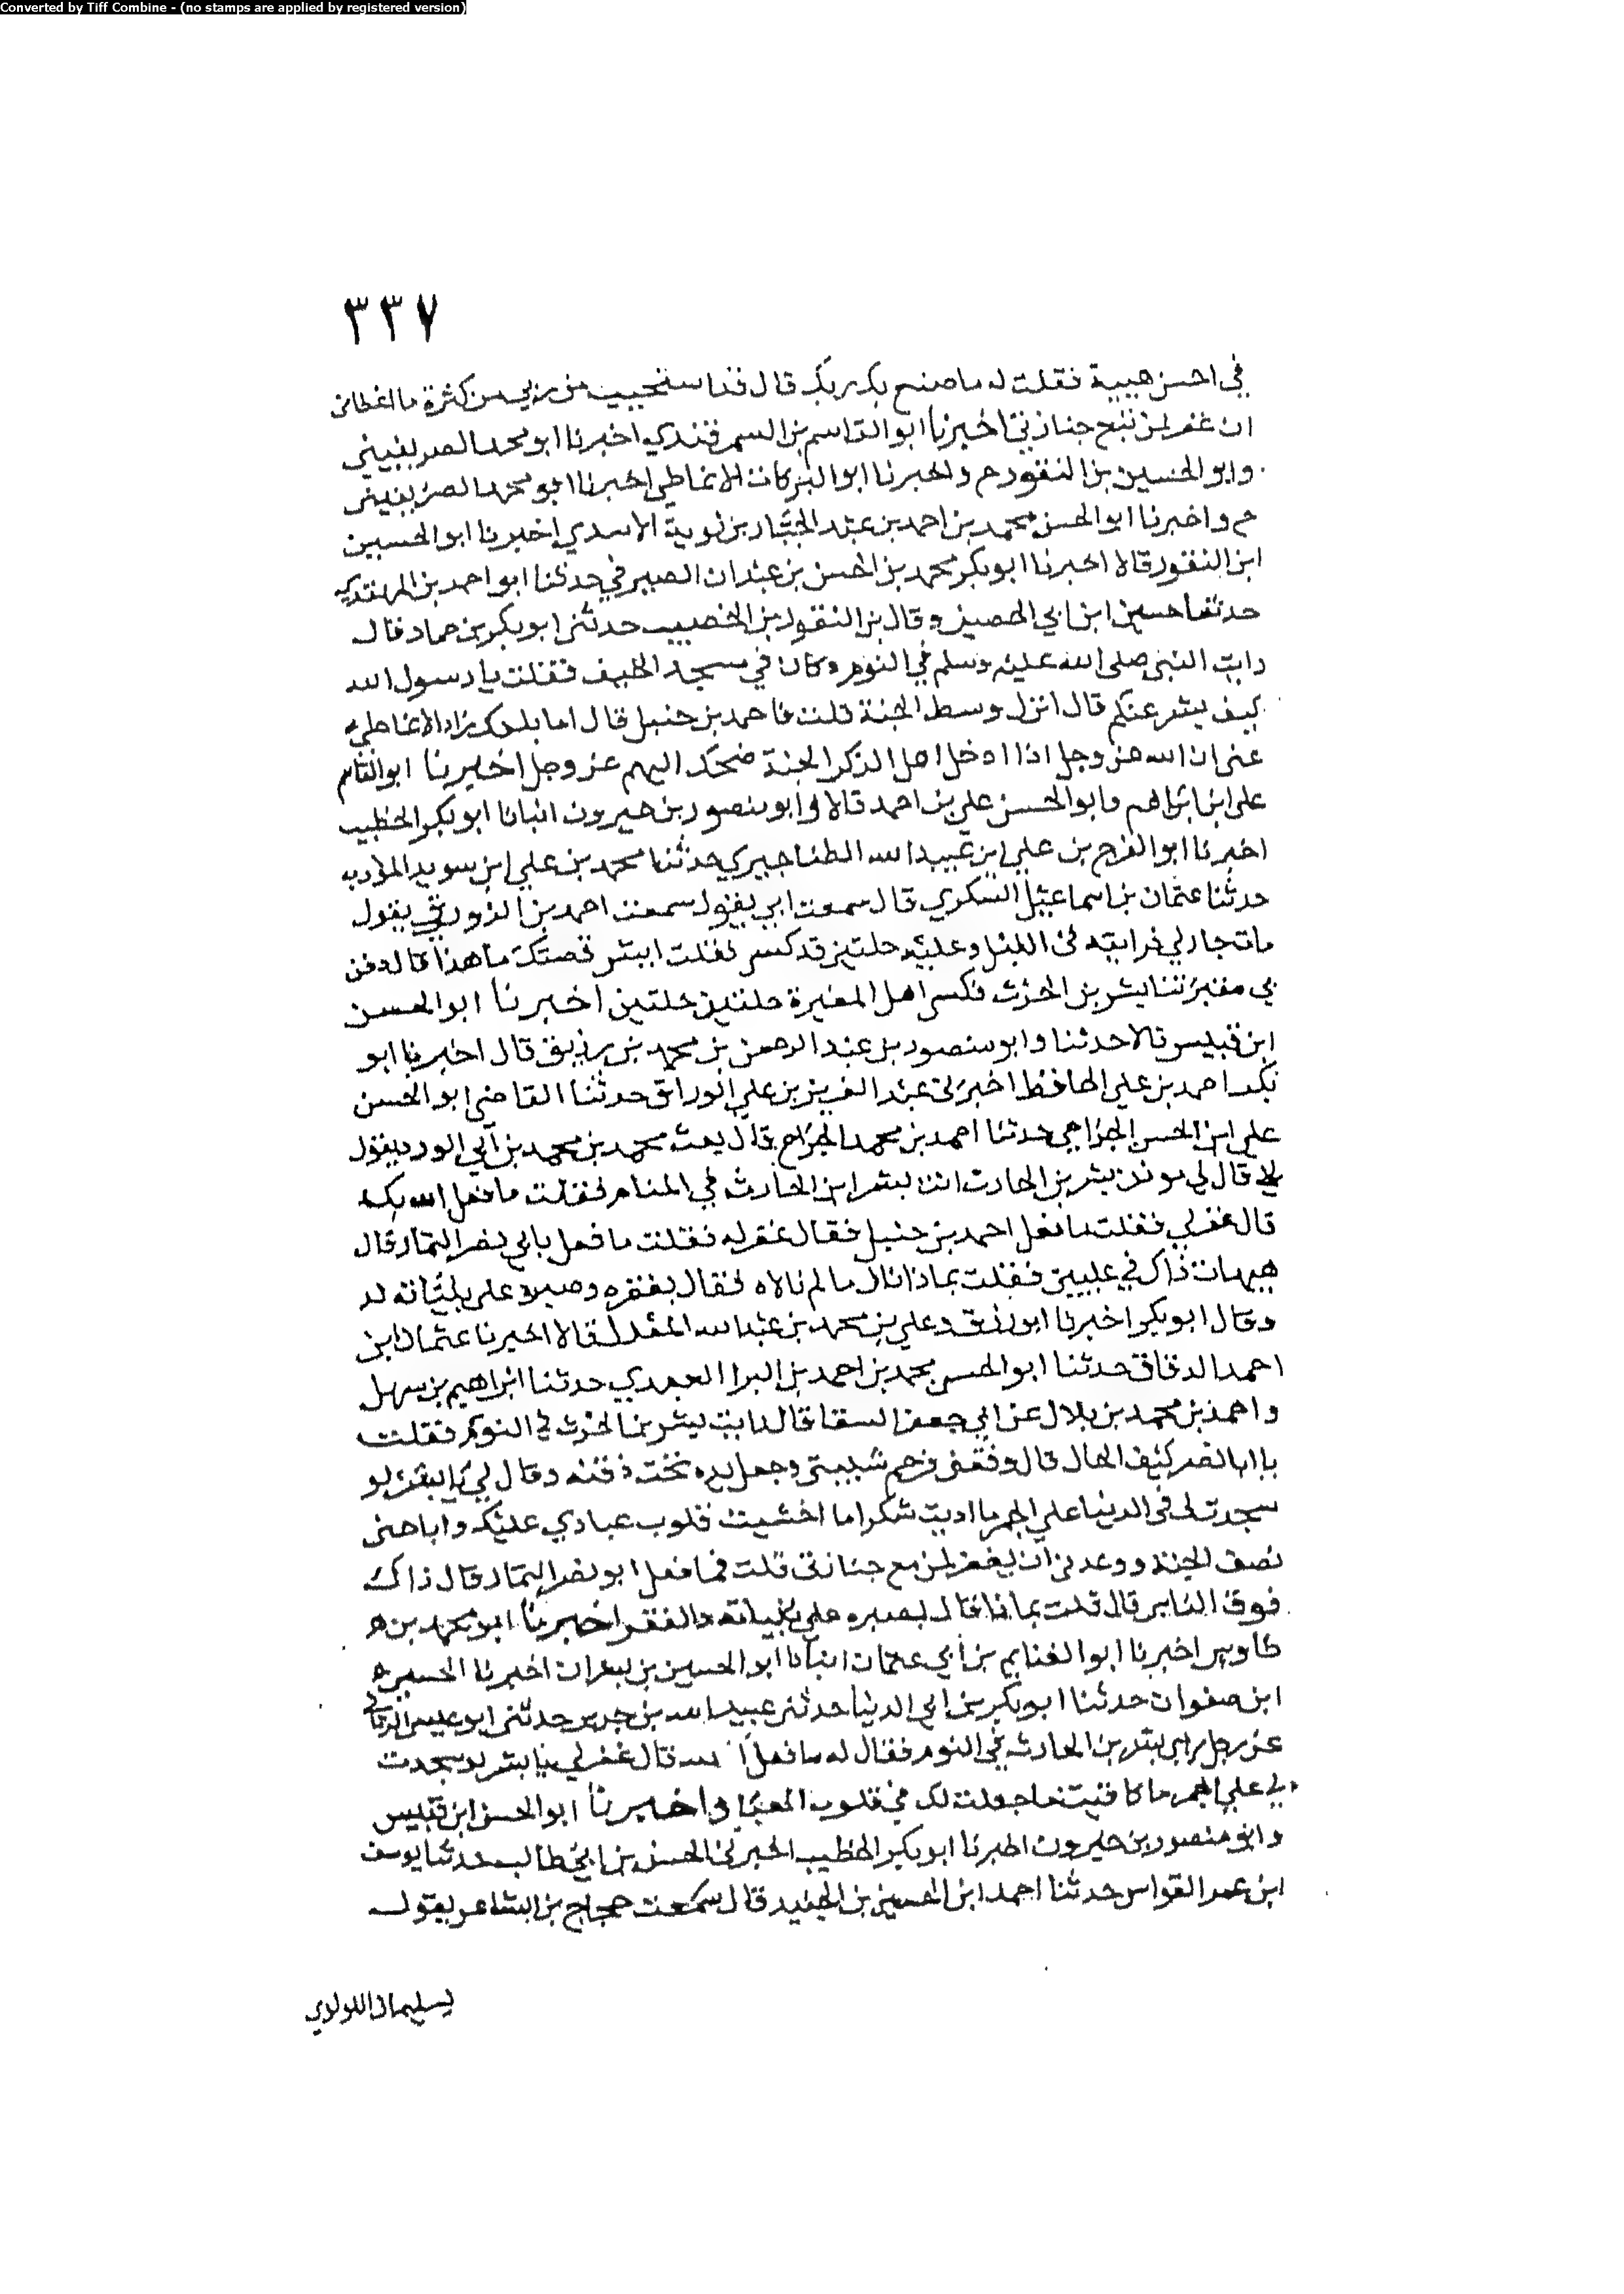 Converted by Tiff Combine - (no stamps are applied by registered version)
٣٣٧
في احسن هيبة فقلت له ما صنع بك ربك قال قد استحييت من ربي من كثرة ما اعطاني
ان غفر لمن تبع جنازتي اخبرنا ابو القاسم بن السمرقندي اخبرنا ابو محمد الصريفيني
وابو الحسين بن النقور ح واخبرنا ابو البركات الانماطي اخبرنا ابو محمد الصريفيني
ح واخبرنا ابو الحسن محمد بن احمد بن عبد الجبار بن توبة الاسدي اخبرنا ابو الحسين
ابن النقور قالا اخبرنا ابو بكر محمد بن الحسن بن عبدان الصيرفي حدثنا ابو احمد بن المهتدي
حدثنا حسين ابن ابي الحصين وقال بن النقور بن الخصيب حدثني ابو بكر بن حماد قال
رايت النبي صلى الله عليه وسلم في النوم وكان في مسجد الخيف فقلت يا رسول الله
كيف بشر عندكم قال انزل وسط الجنة قلت فاحمد بن حنبل قال اما بلغك
ان الله عز وجل اذا ادخل اهل الذكر الجنة ضحك اليهم عز وجل اخبرنا ابو القاسم
علي ابن ابراهيم وابو الحسن علي بن احمد قالا وابو منصور بن خيرون انبانا ابو بكر الخطيب
اخبرنا ابو الفرج بن علي ابن عبيد الله الطناجيري حدثنا محمد بن علي ابن سويد المؤدب
حدثنا عثمان بن اسماعيل السكري قال سمعت ابي يقول سمعت احمد بن الدورقي يقول
مات جار لي فرايته في الليل وعليه حلتين قد كسي فقلت ايش قصتك ما هذا قال دفن
في مقبرتنا بشر بن الحرث فكسي اهل المقبرة حلتين حلتين اخبرنا ابو الحسن
ابن قبيس قالا حدثنا وابو منصور بل عبد الرحمن بن محمد بن رزيق قال اخبرنا ابو
بكر احمد بن علي الحافظ اخبرني عبد العزيز بن علي الوراق حدثنا القاضي ابو الحسن
علي ابن الحسن الجراحي حدثنا احمد بن محمد الجراح قال سمعت محمد بن محمد بن ابي الورد يقول
قال لي موذن بشر بن الحارث رايت بشر ابن الحارث في المنام فقلت ما فعل الله بك
قال غفر لي فقلت ما فعل احمد بن حنبل فقال غفر له فقلت ما فعل بابي نصر التمار قال
هيهات ذاك في عليين فقلت بماذا نال ما لم نالاه فقال بفقره وصبره على بنياته له
وقال ابو بكر اخبرنا ابن رزق وعلي بن محمد بن عبد الله المعدل قالا اخبرنا عثمان ابن
احمد الدقاق حدثنا ابو الحسن محمد بن احمد بن البرا العبدي حدثنا ابراهيم بن سهل
واحمد بن محمد بن بلال عن ابي جعفر السقا قال رايت بشر بن الحرث في النوم فقلت
يا ابا نصر كيف الحال قال وقفني فرحم شيبتي وجعل يده تحت ذقنه وقال لي يا بشر لو
سجدت لي في الدنيا علي الجمر ما اديت شكر اما اخشيت قلوب عبادي عليك واباحني
نصف الجنة ووعدني ان يغفر لمن مع جنازتي قلت فما فعل ابو نصر التمار قال ذاك
فوق الناس قال قلت بماذا قال بصبره على بنياته والفقر اخبرنا ابو محمد بن
طاوس اخبرنا ابو الغنايم بن ابي عثمان انبانا ابو الحسين بن بشران اخبرنا الحسين
ابن صفوان حدثنا ابو بكر بن ابي الدنيا حدثني عبيد الله بن جرير حدثني ابو عيسى
عن رجل راى بشر بن الحارث في النوم فقال له ما فعل الله قال غفر لي يا بشر لو سجدت
لي علي الجمر ما كافيت ما جعلت لك في قلوب العباد واخبرنا ابو الحسن ابن قبيس
وابو منصور بن خيرون اخبرنا ابو بكر الخطيب اخبرني الحسن بن ابي طالب حدثنا يوسف
ابن عمر القواس حدثنا احمد ابن الحسين بن الجنيد قال سمعت حجاج بن الشاعر يقول
لسليمان اللولوي